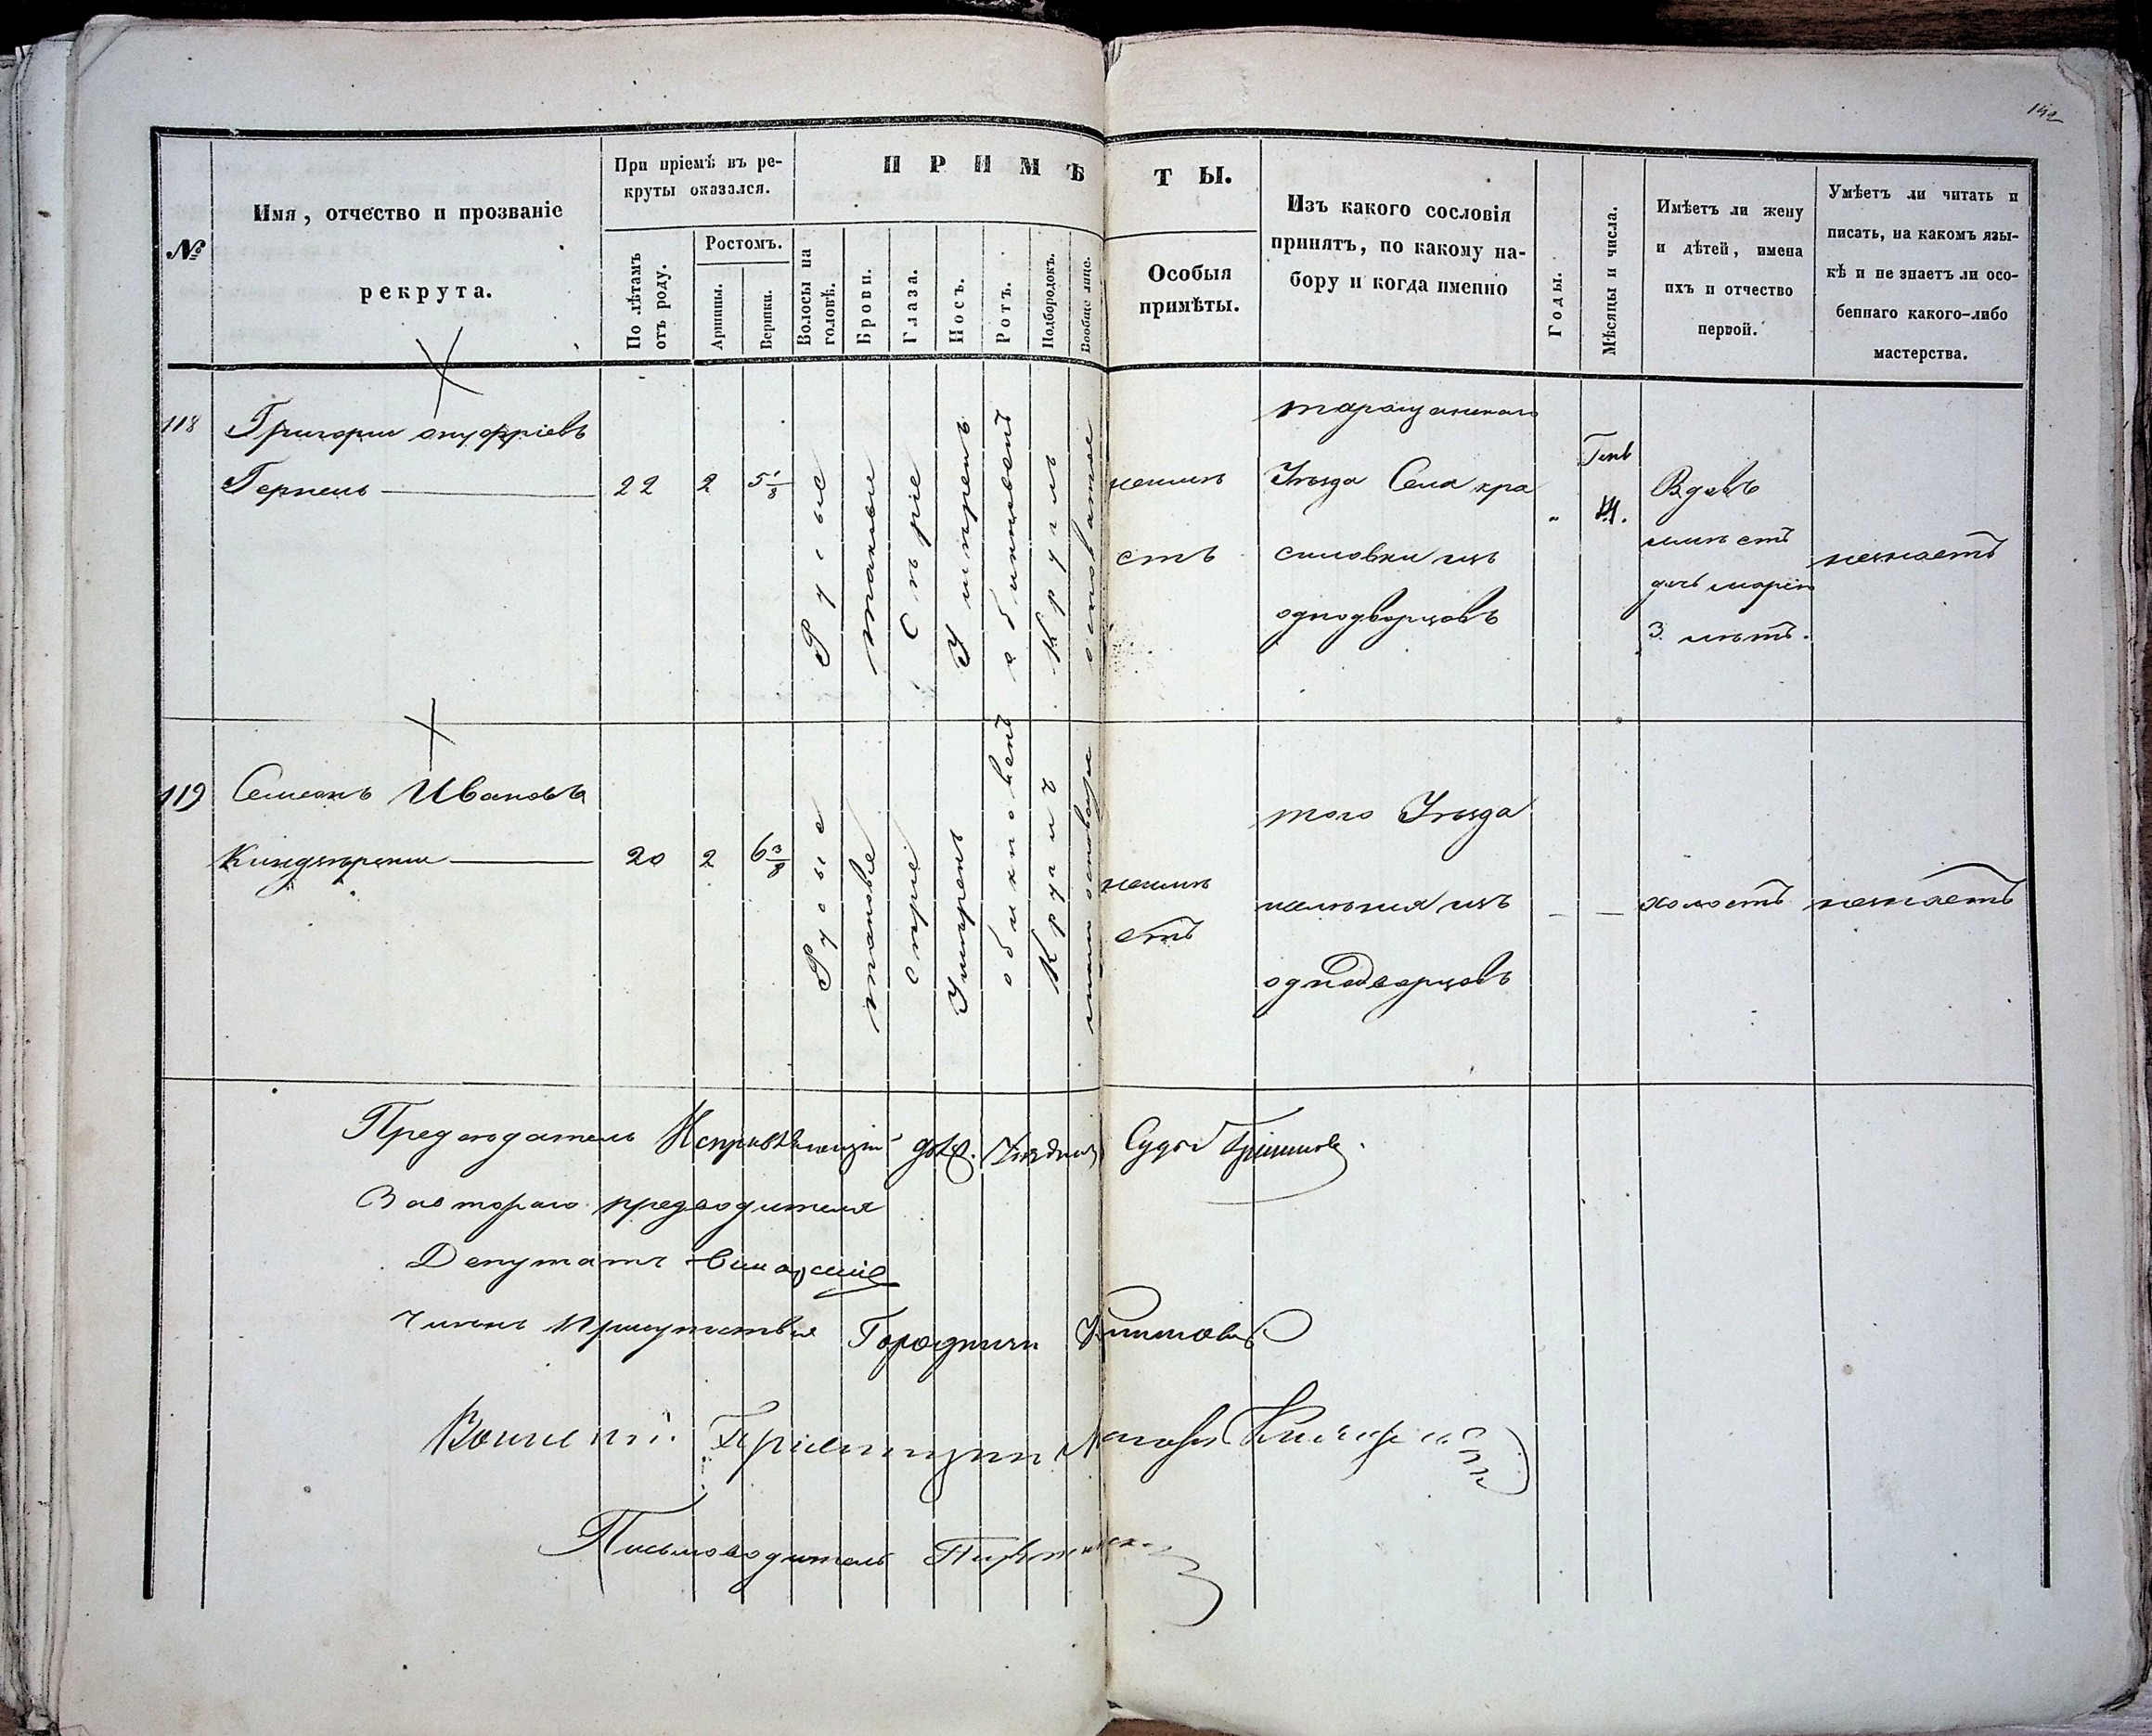 142
№
Имя, отчество и прозваніе
рекрута.
При пріемѣ въ ре-
круты оказался.
По лѣтамъ
отъ роду.
Ростомъ.
Аршины.
Вершки.
ПРИМѢТЫ.
Волосы на
головѣ.
Брови.
Глаза.
Носъ.
Ротъ.
Подбородокъ.
Вообще лице.
Особыя
примѣты.
Изъ какого сословія
принятъ, по какому на-
бору и когда именно
Годы.
Мѣсяцы и числа.
Имѣетъ ли жену
и дѣтей, имена
ихъ и отчество
первой.
Умѣетъ ли читать и
писать, на какомъ язы-
кѣ и не знаетъ ли осо-
беннаго какого-либо
мастерства.
118
Григорий онуфріевъ
22
2
5 1/8
Русые
таковыи
Сѣріе
Умѣренъ
обикновенъ
Кругл
неимѣ
етъ
таращанскаго
Уѣзда Села кра
силовки изъ
однодворцовъ
Генв
14.
Вдовъ
имѣетъ
дочь марію
3 лѣтъ.
незнаетъ
119
Семенъ Ивановъ
20
2
6 3/8
Русые
таковые
Сѣріе
Умѣренъ
обикновенъ
Кругил
неимѣ
етъ
того Уѣзда
изъ
однодворцовъ
холостъ
незнаетъ
Председатель Исправляющій Уѣздный Судья
За втораго предводителя
Депутатъ
Членъ Присутствия Городничи
Военный Приемщик
Письмоводитель